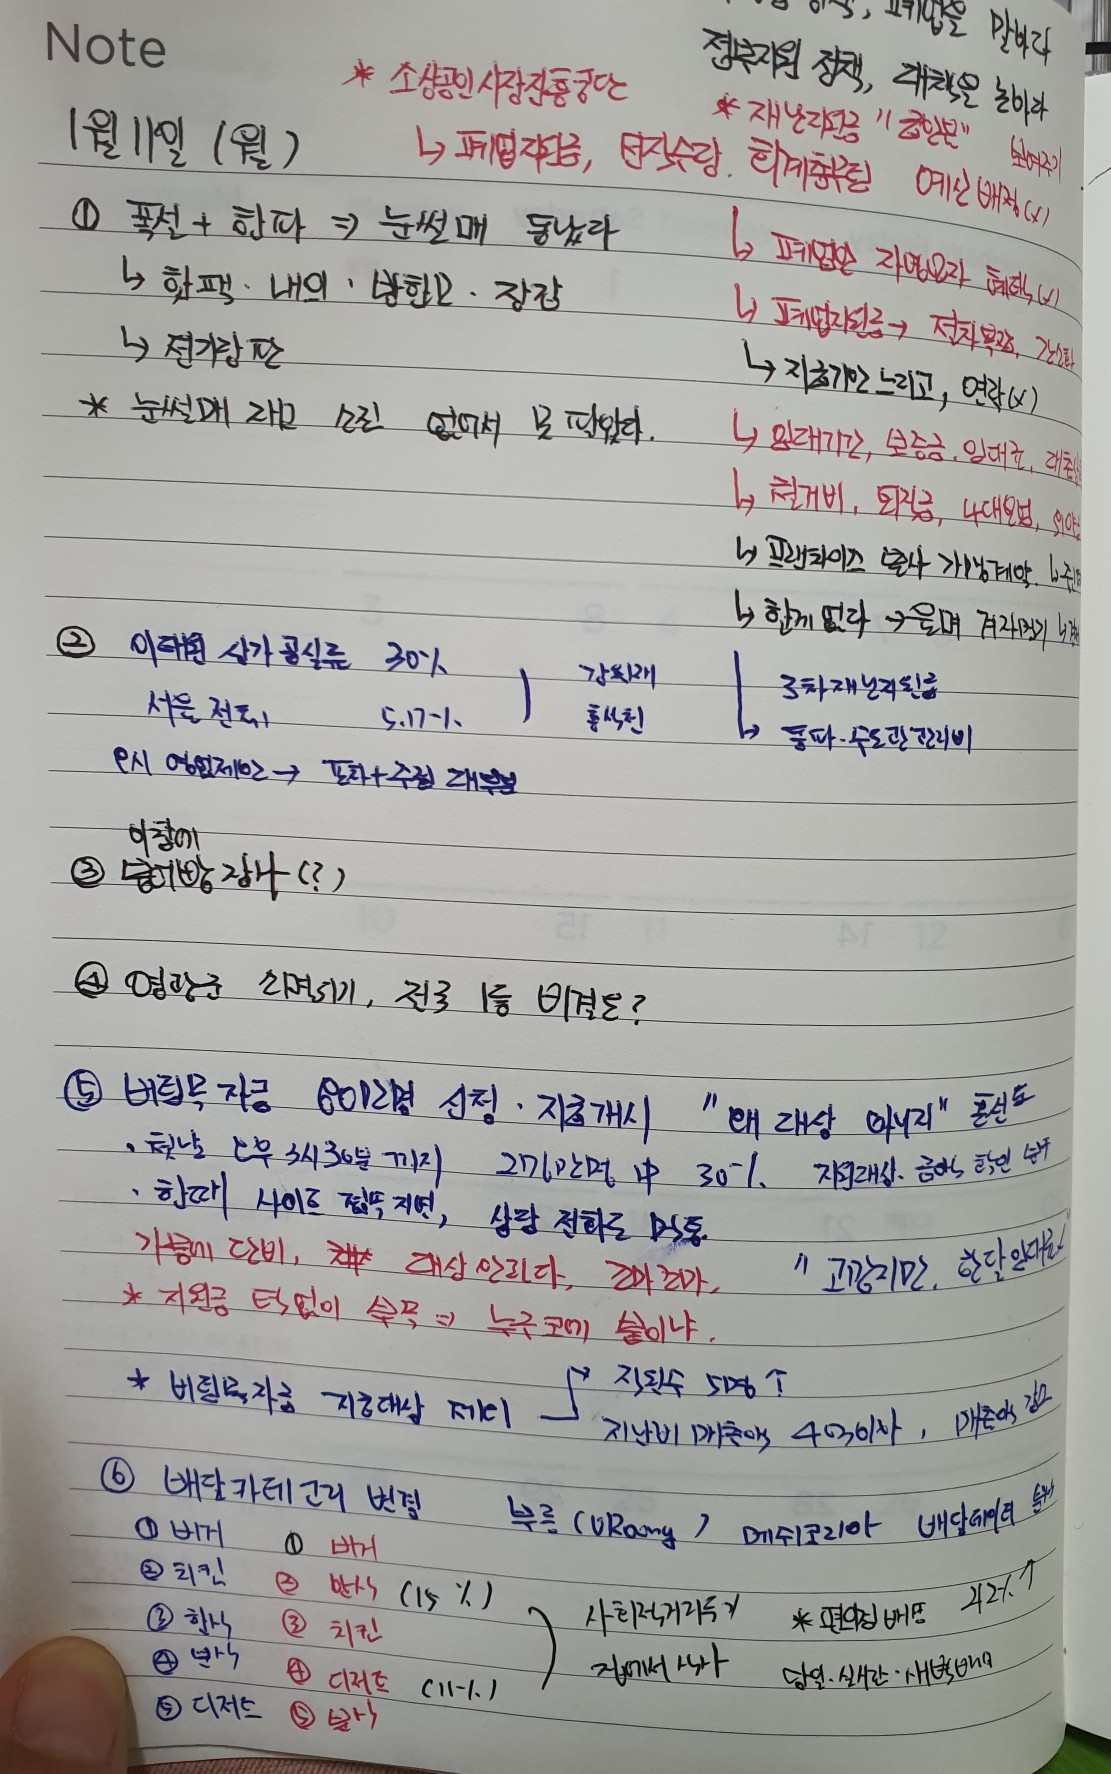 Note
폐업을 말하라
정부지원 정책, 대책을 놓아라
* 소상공인시장진흥공단
* 재난지원금 "공인문" 보여주기
1월 11일 (월)
↳ 폐업지원금, 전직수당. 예산 배정(x)
① 폭설 + 한파 ⇒ 눈썰매 동났다
↳ 폐업한 자영업자 혜택(x)
↳ 핫팩 · 내의 · 방한모 · 장갑
↳ 폐업지원금 → 절차복잡, 간소화
↳ 전기장판
↳ 지급기간 느리고, 연락(x)
* 눈썰매 재고 소진 없어서 못 팔았다.
↳ 임대기간, 보증금, 임대료, 대출
↳ 철거비, 퇴직금, 4대보험,
↳ 프랜차이즈 본사 가맹계약.
↳ 한계 없다 → 울며 겨자먹기
② 이태원 상가 공실률 30%
강원래
홍석천
3차재난지원금
서울 전체 5.17%
↳ 동파 · 수도관 관리비
9시 영업제한 → 포차 + 주점 대부분
이참에
③ 장사 (?)
④ 영광군 전국 1등 비결은?
⑤ 버팀목 자금 신청 · 지급개시 "왜 대상 아니지" 혼선도
· 첫날 오후 3시30분 까지 276만명 中 30%. 지원대상. 금액 확인
· 한때 사이트 접속 지연, 상담 전화도 먹통.
가뭄에 단비, 대상 안된다, 조마조마, "고맙지만, 한달 임대료"
* 지원금 턱없이 부족 ⇒ 누구 코에 붙이냐.
* 버팀목자금 지급대상 제외
직원수 5명 ↑
지난해 매출액 4억이하, 매출액 감소
⑥ 배달카테고리 변경 부릉 (VRoong) 메쉬코리아 배달데이터
① 버거 ① 버거
② 치킨 ② 분식 (15%)
③ 한식 ③ 치킨
④ 분식 ④ 디저트 (11%)
⑤ 디저트 ⑤
사회적거리두기
집에서 식사
* 편의점 배달 42% ↑
당일 · 실시간 · 새벽배송